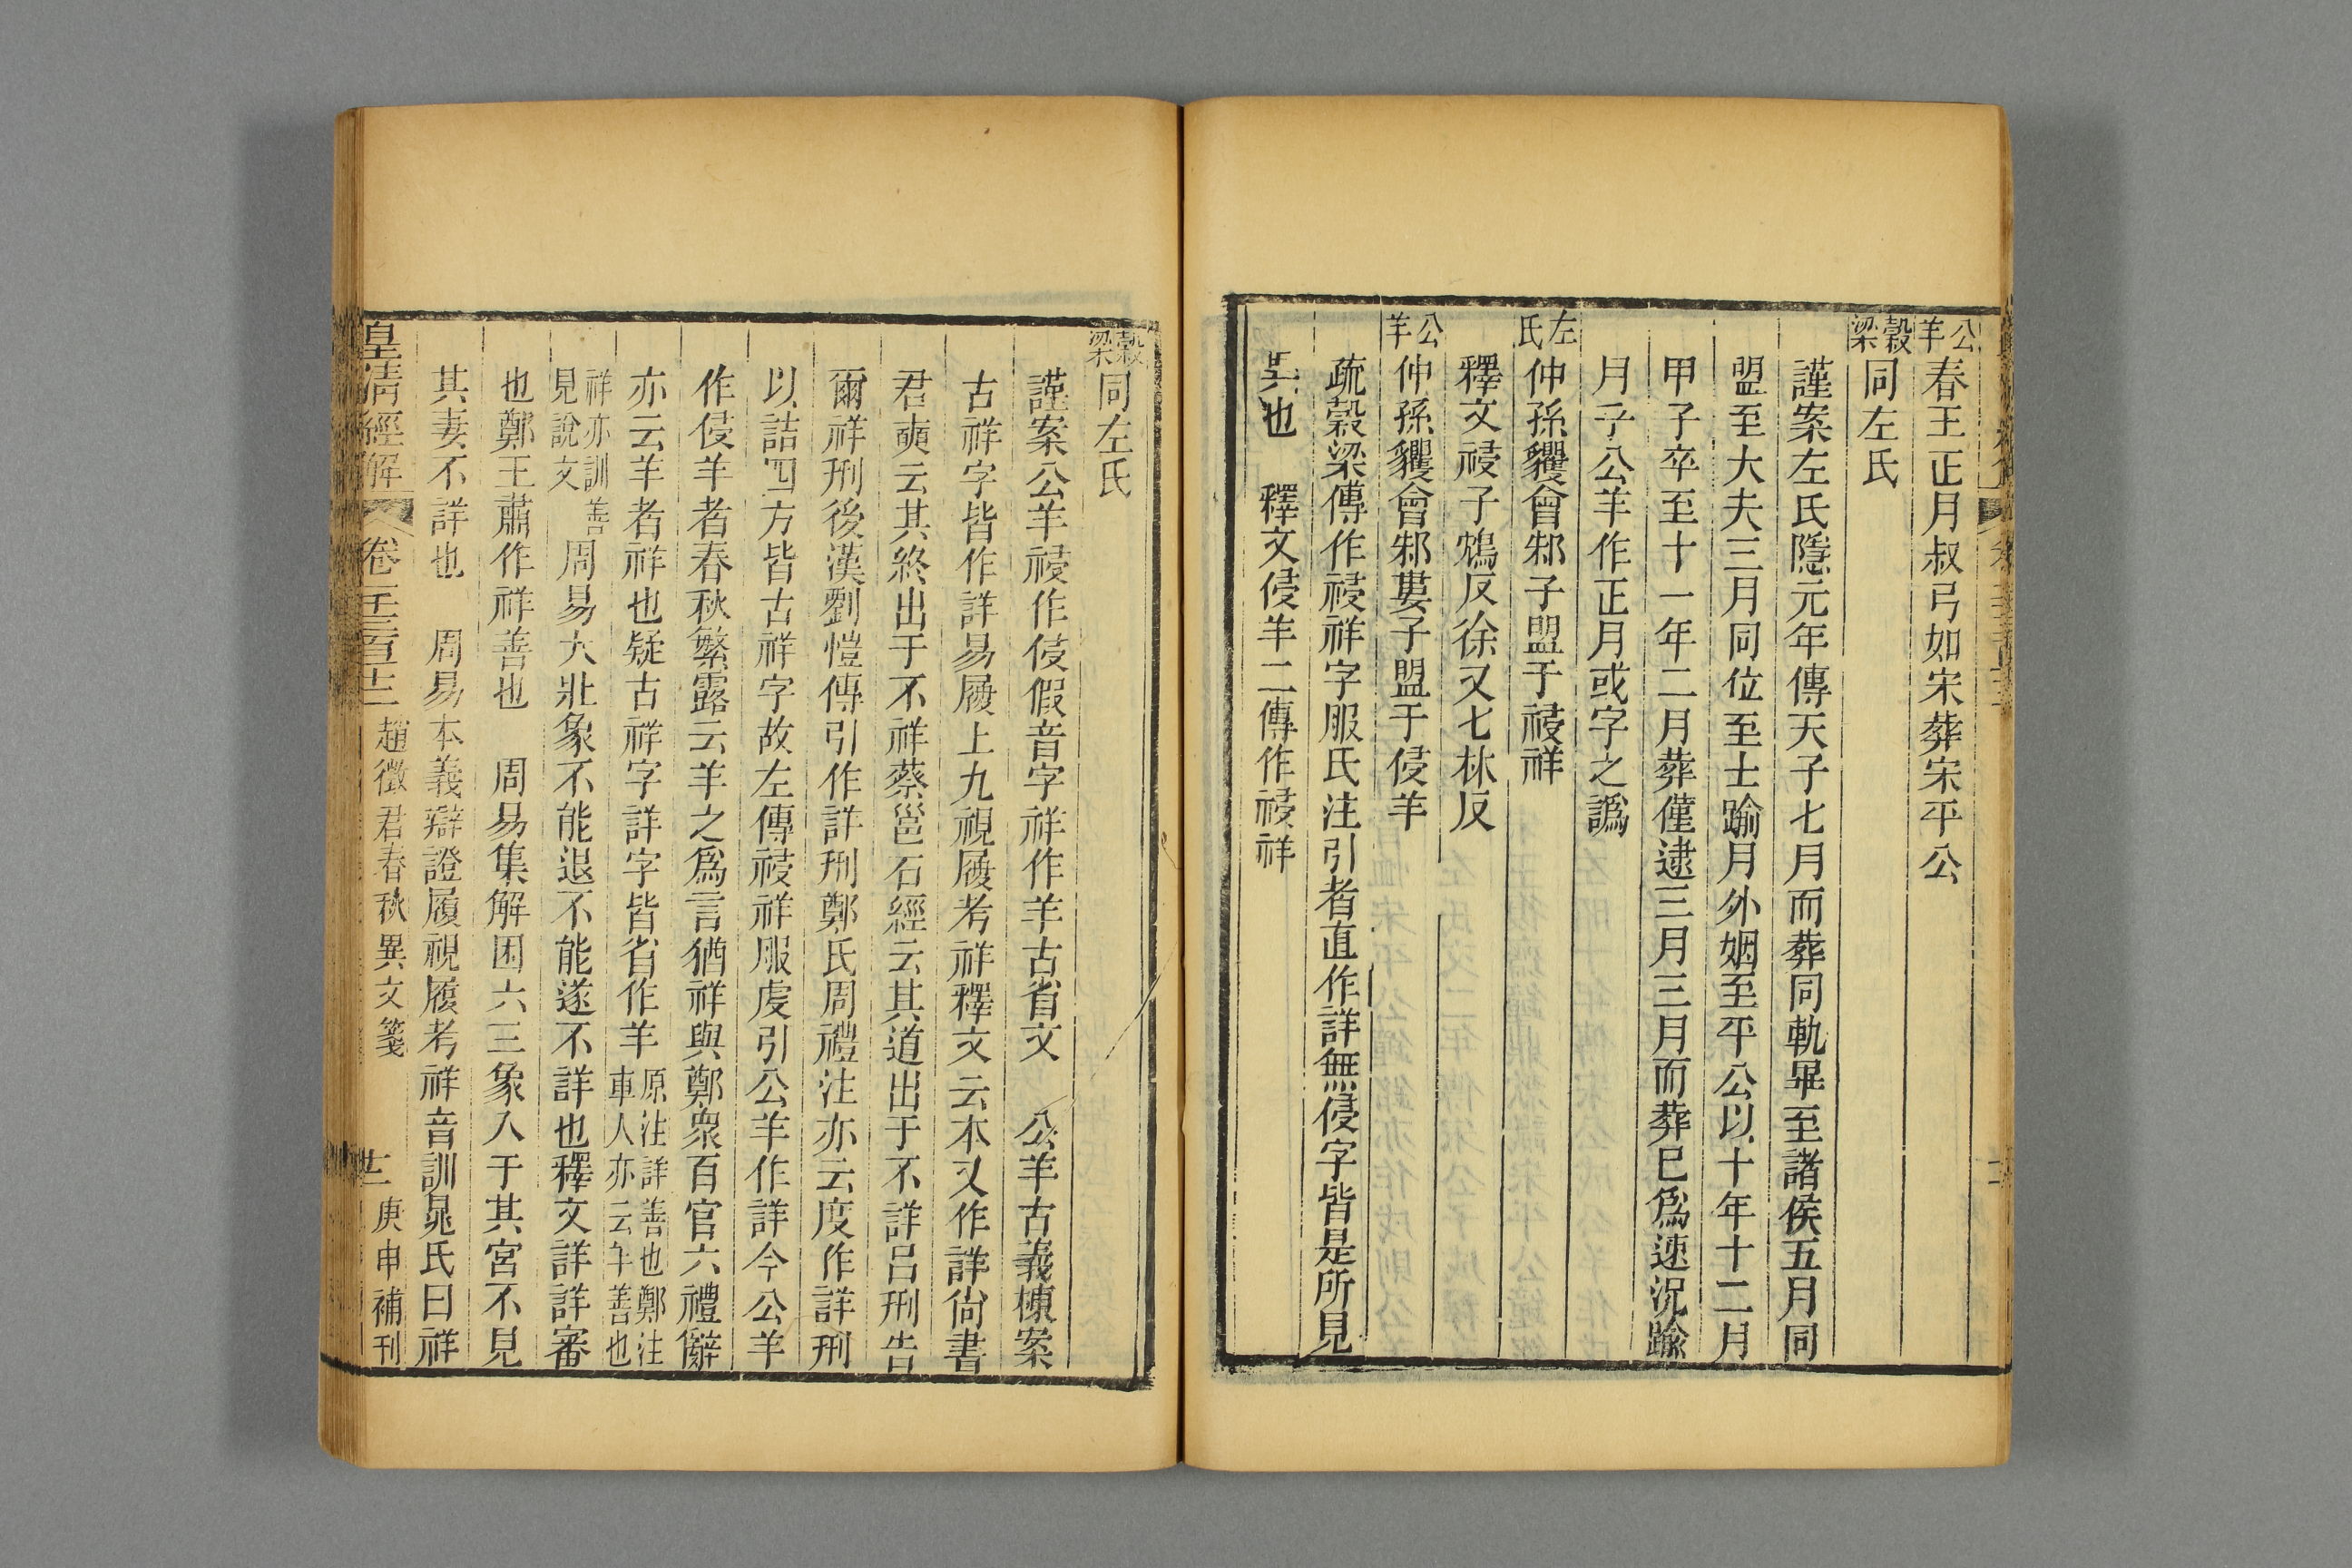 公羊春王正月叔弓如宋葬宋平公
穀梁同左氏
謹案左氏隱元年傳天子七月而葬同軌畢至諸侯五月同
盟至大夫三月同位至士踰月外姻至平公以十年十二月
甲子卒至十一年二月葬僅逮三月三月而葬已爲速況踰
月乎公羊作正月或字之譌
左氏仲孫貜會邾子盟于祲祥
釋文祲子鴆反徐又七林反
公羊仲孫貜會邾婁子盟于侵羊
疏穀梁傳作祲祥字服氏注引者直作詳無侵字皆是所見
異也　釋文侵羊二傳作祲祥
穀梁同左氏
謹案公羊祲作侵假音字祥作羊古省文　公羊古義棟案
古祥字皆作詳易履上九視履考祥釋文云本又作詳尙書
君奭云其終出于不祥蔡邕石經云其道出于不詳呂刑告
爾祥刑後漢劉愷傳引作詳刑鄭氏周禮注亦云度作詳刑
以詰四方皆古祥字故左傳祲祥服虔引公羊作詳今公羊
作侵羊者春秋繁露云羊之爲言猶祥與鄭衆百官六禮辭
亦云羊者祥也疑古祥字詳字皆省作羊原注詳善也鄭注車人亦云羊善也
祥亦訓善見說文周易大壯象不能退不能遂不詳也釋文詳詳審
也鄭王肅作祥善也　周易集解困六三象入于其宮不見
其妻不詳也　周易本義辯證履視履考祥音訓晁氏曰祥
皇清經解　卷一千三百十二　趙徵君春秋異文箋　庚申補刊